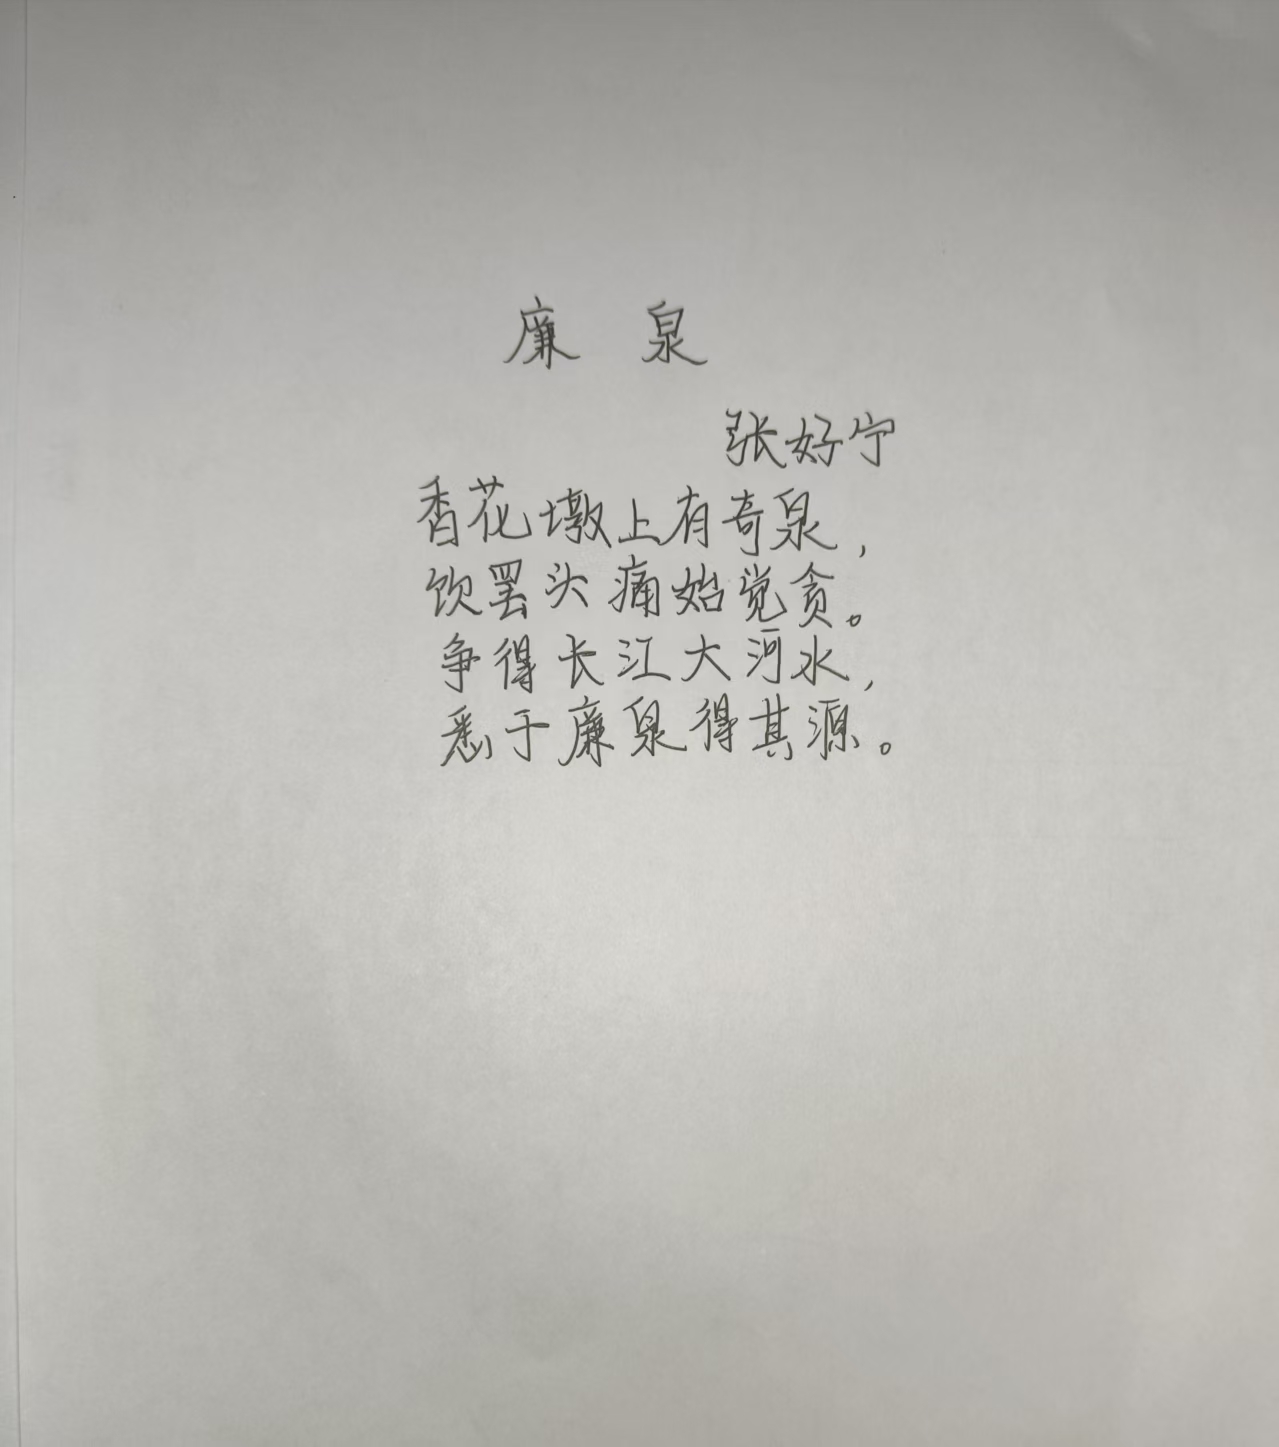 廉泉
张好宁
香花墩上有奇泉，
饮罢头痛始觉贪。
争得长江大河水，
悉于廉泉得其源。